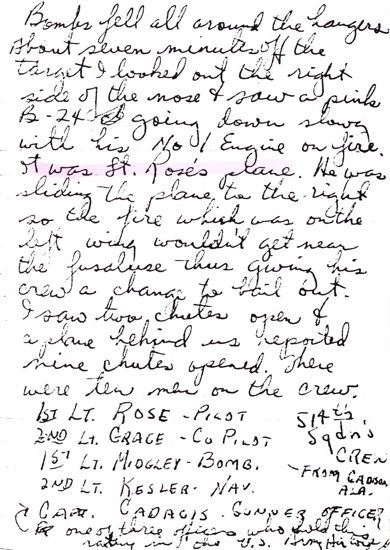 Bombs fell all around the hangers
About seven minutes off the
target I looked out the right
side of the nose & saw a pink
B-24 going down slowly
with his No 1 Engine on fire.
It was Lt. Rose's plane. He was
sliding the plane to the right
so the fire which was on the
left wing wouldn't get near
the fusaluse thus giving his
crew a change to bail out.
I saw two chutes open &
a plane behind us reported
nine chutes opened. There
were ten men on the crew.
1ST LT. ROSE - PILOT
2ND LT. GRACE - CO PILOT
1ST LT. MIDGLEY - BOMB.
2ND LT. KESLER - NAV.
CAPT. CADAGIS - GUNNER OFFICER
one of three officers who hold this
rating in the U.S. Army Air
514th
Sqdn's
CREW
- FROM
ALA.